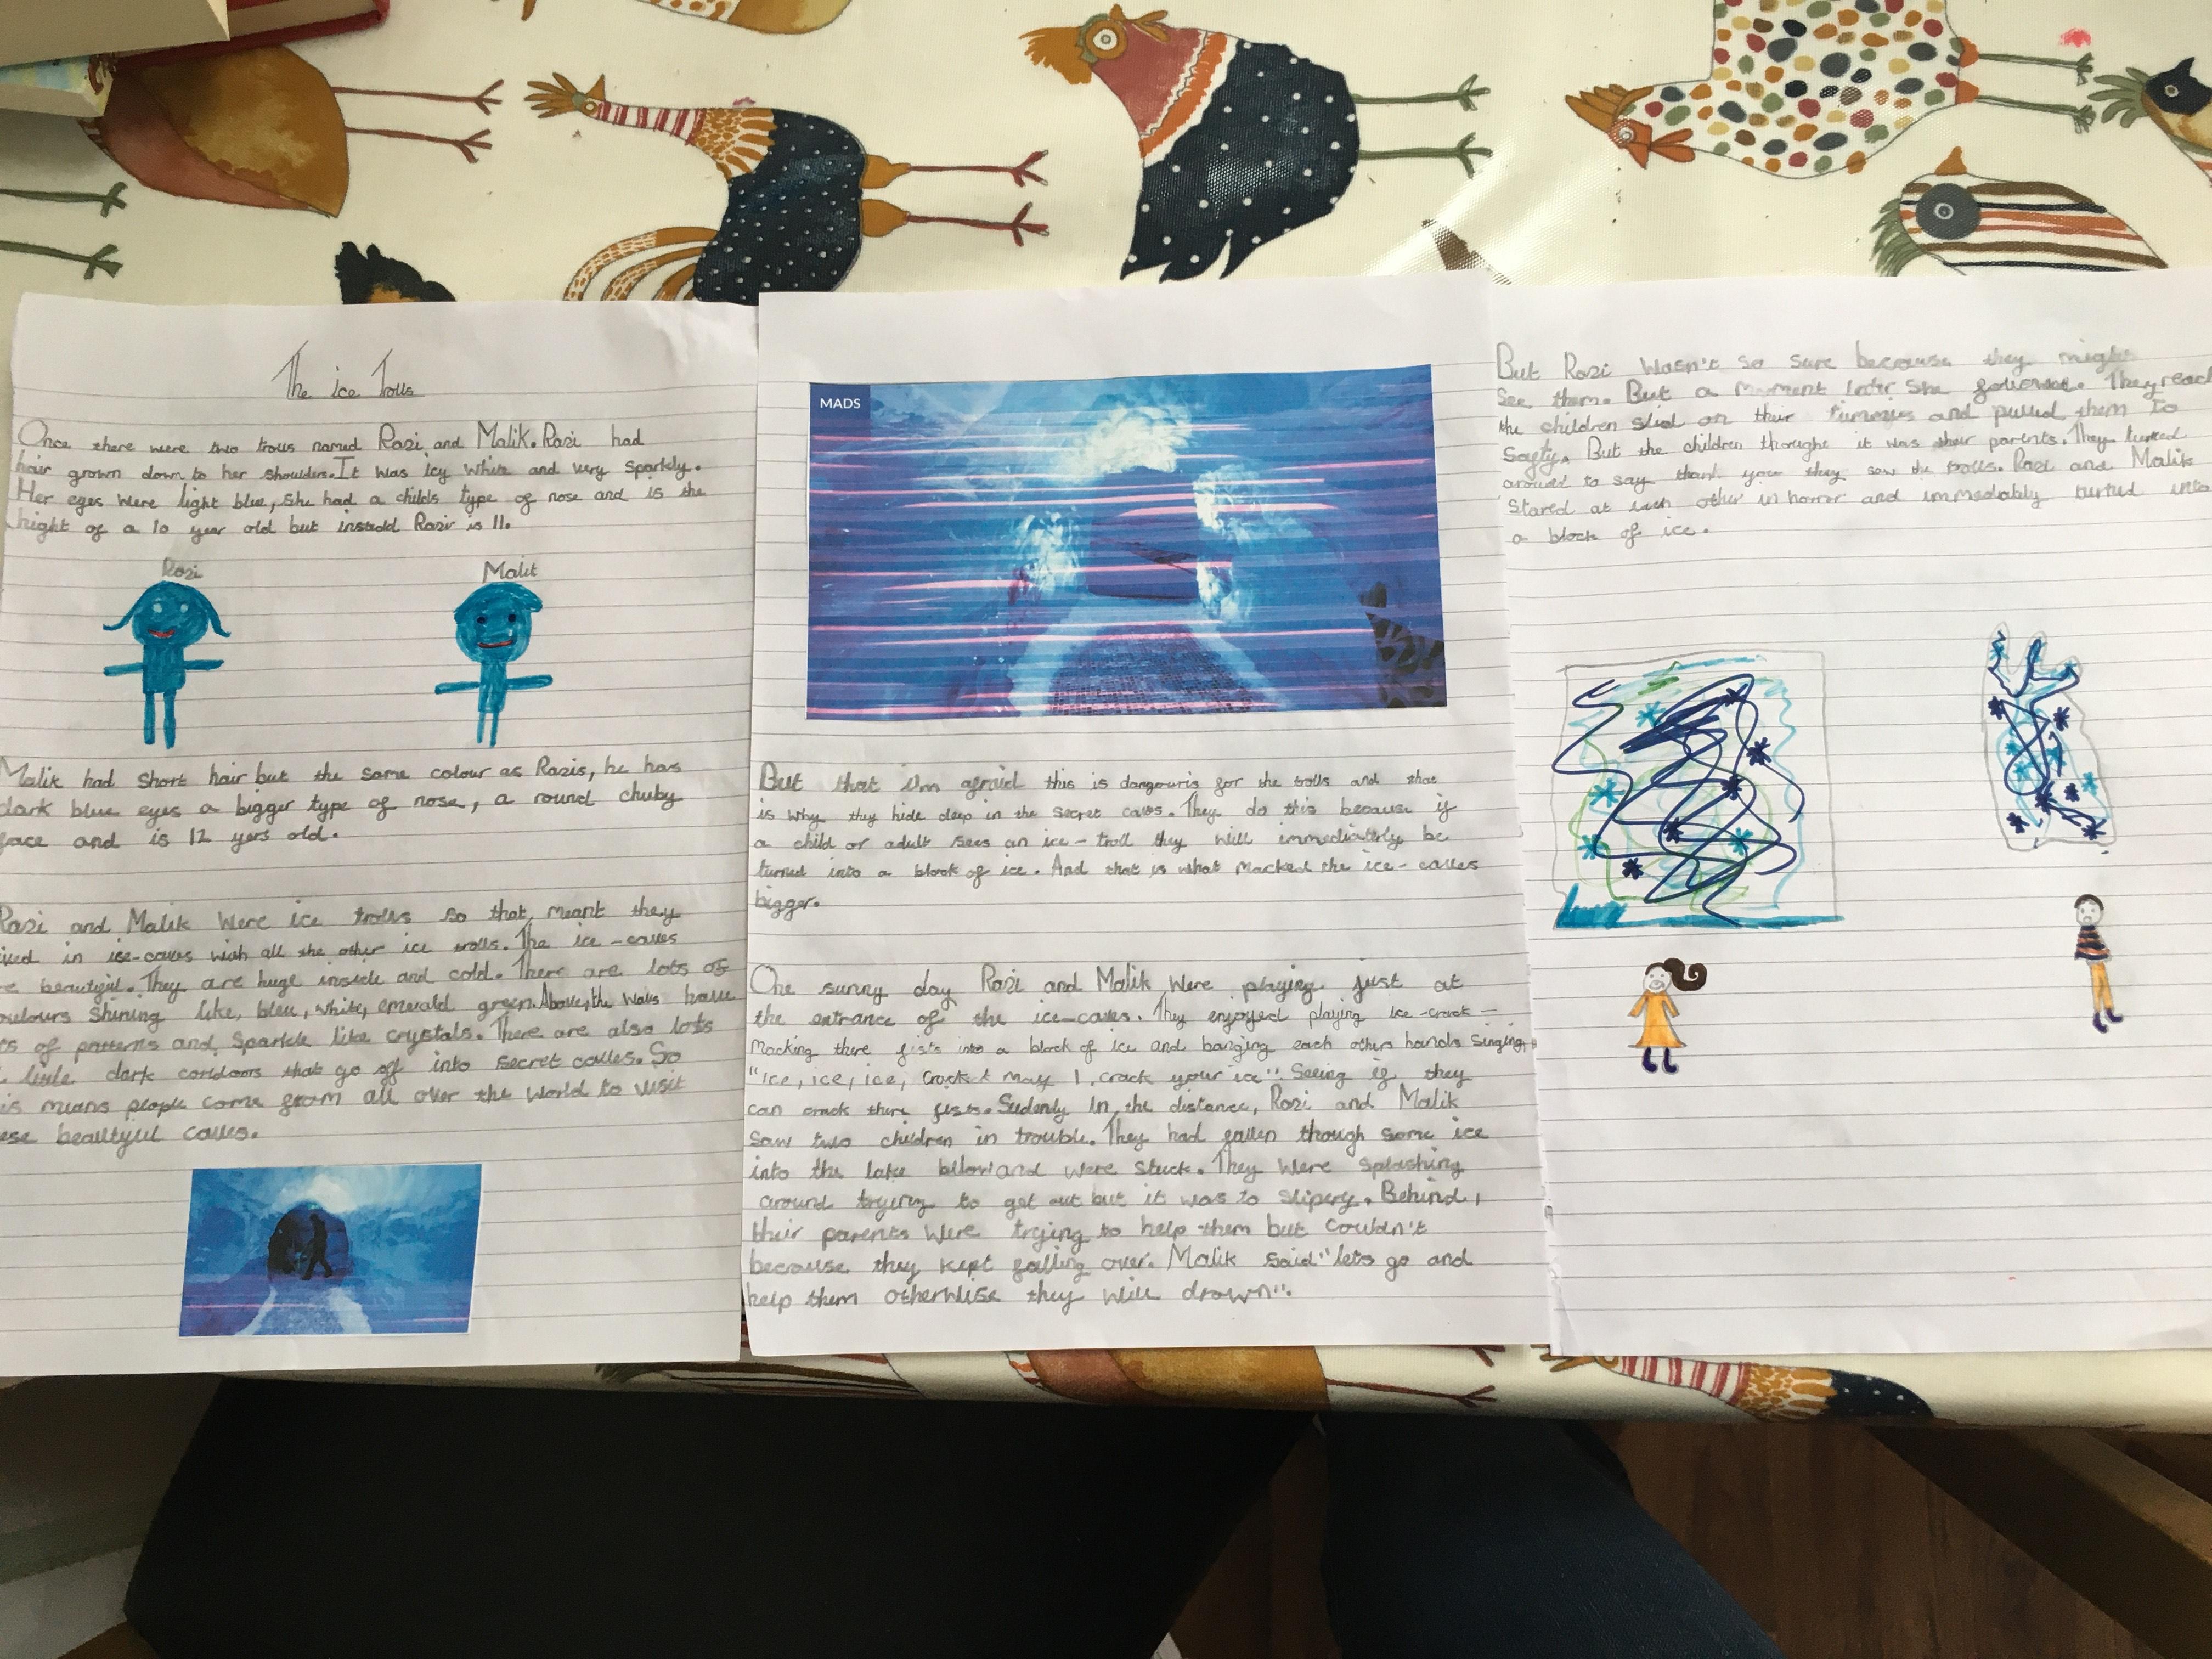 The ice Trolls
Once there were two trolls named Razi and Malik. Razi had
hair grown down to her shoulders. It was icy white and very sparkly.
Her eyes were light blue, she had a childs type of nose and is the
hight of a 10 year old but instedd Razi is 11.
Razi
Malik
Malik had short hair but the same colour as Razis, he has
dark blue eyes a bigger type of nose, a round chuby
face and is 12 yers old.
Razi and Malik were ice trolls so that meant they
ived in ice-caves with all the other ice trolls. The ice-caves
e beautiful. They are huge inside and cold. There are lots of
oulours shining like, bleu, white, emerald green. Above, the walls have
ts of patterns and sparkle like crystals. There are also lots
little dark coridoors that go of into secret caves. So
is means people come from all over the world to visit
ese beautiful caves.
MADS
But that i'm afraid this is dangouris for the trolls and that
is why they hide deep in the secret caves. They do this because if
a child or adult sees an ice-troll they will immediatly be
turned into a block of ice. And that is what macked the ice-caves
bigger.
One sunny day Razi and Malik were playing just at
the entrance of the ice-caves. They enjoyed playing ice-crack-
Macking there fists into a block of ice and banging each others hands singing,
"ice, ice, ice, crack & may I crack your ice". Seeing if they
can crack there fists. Sudenly in the distance, Razi and Malik
saw two children in trouble. They had fallen though some ice
into the lake bilow and were stuck. They were splashing
around trying to get out but it was to slipery. Behind,
their parents were trying to help them but couldn't
because they kept falling over. Malik said "lets go and
help them otherwise they will drown".
But Razi wasn't so sure because they might
see them. But a moment later she followed. They reach
the children slid on their tummies and pulled them to
safty. But the children thought it was their parents. They turned
around to say thank you they saw the trolls. Razi and Malik
stared at each other in horror and immediably turned into
a block of ice.